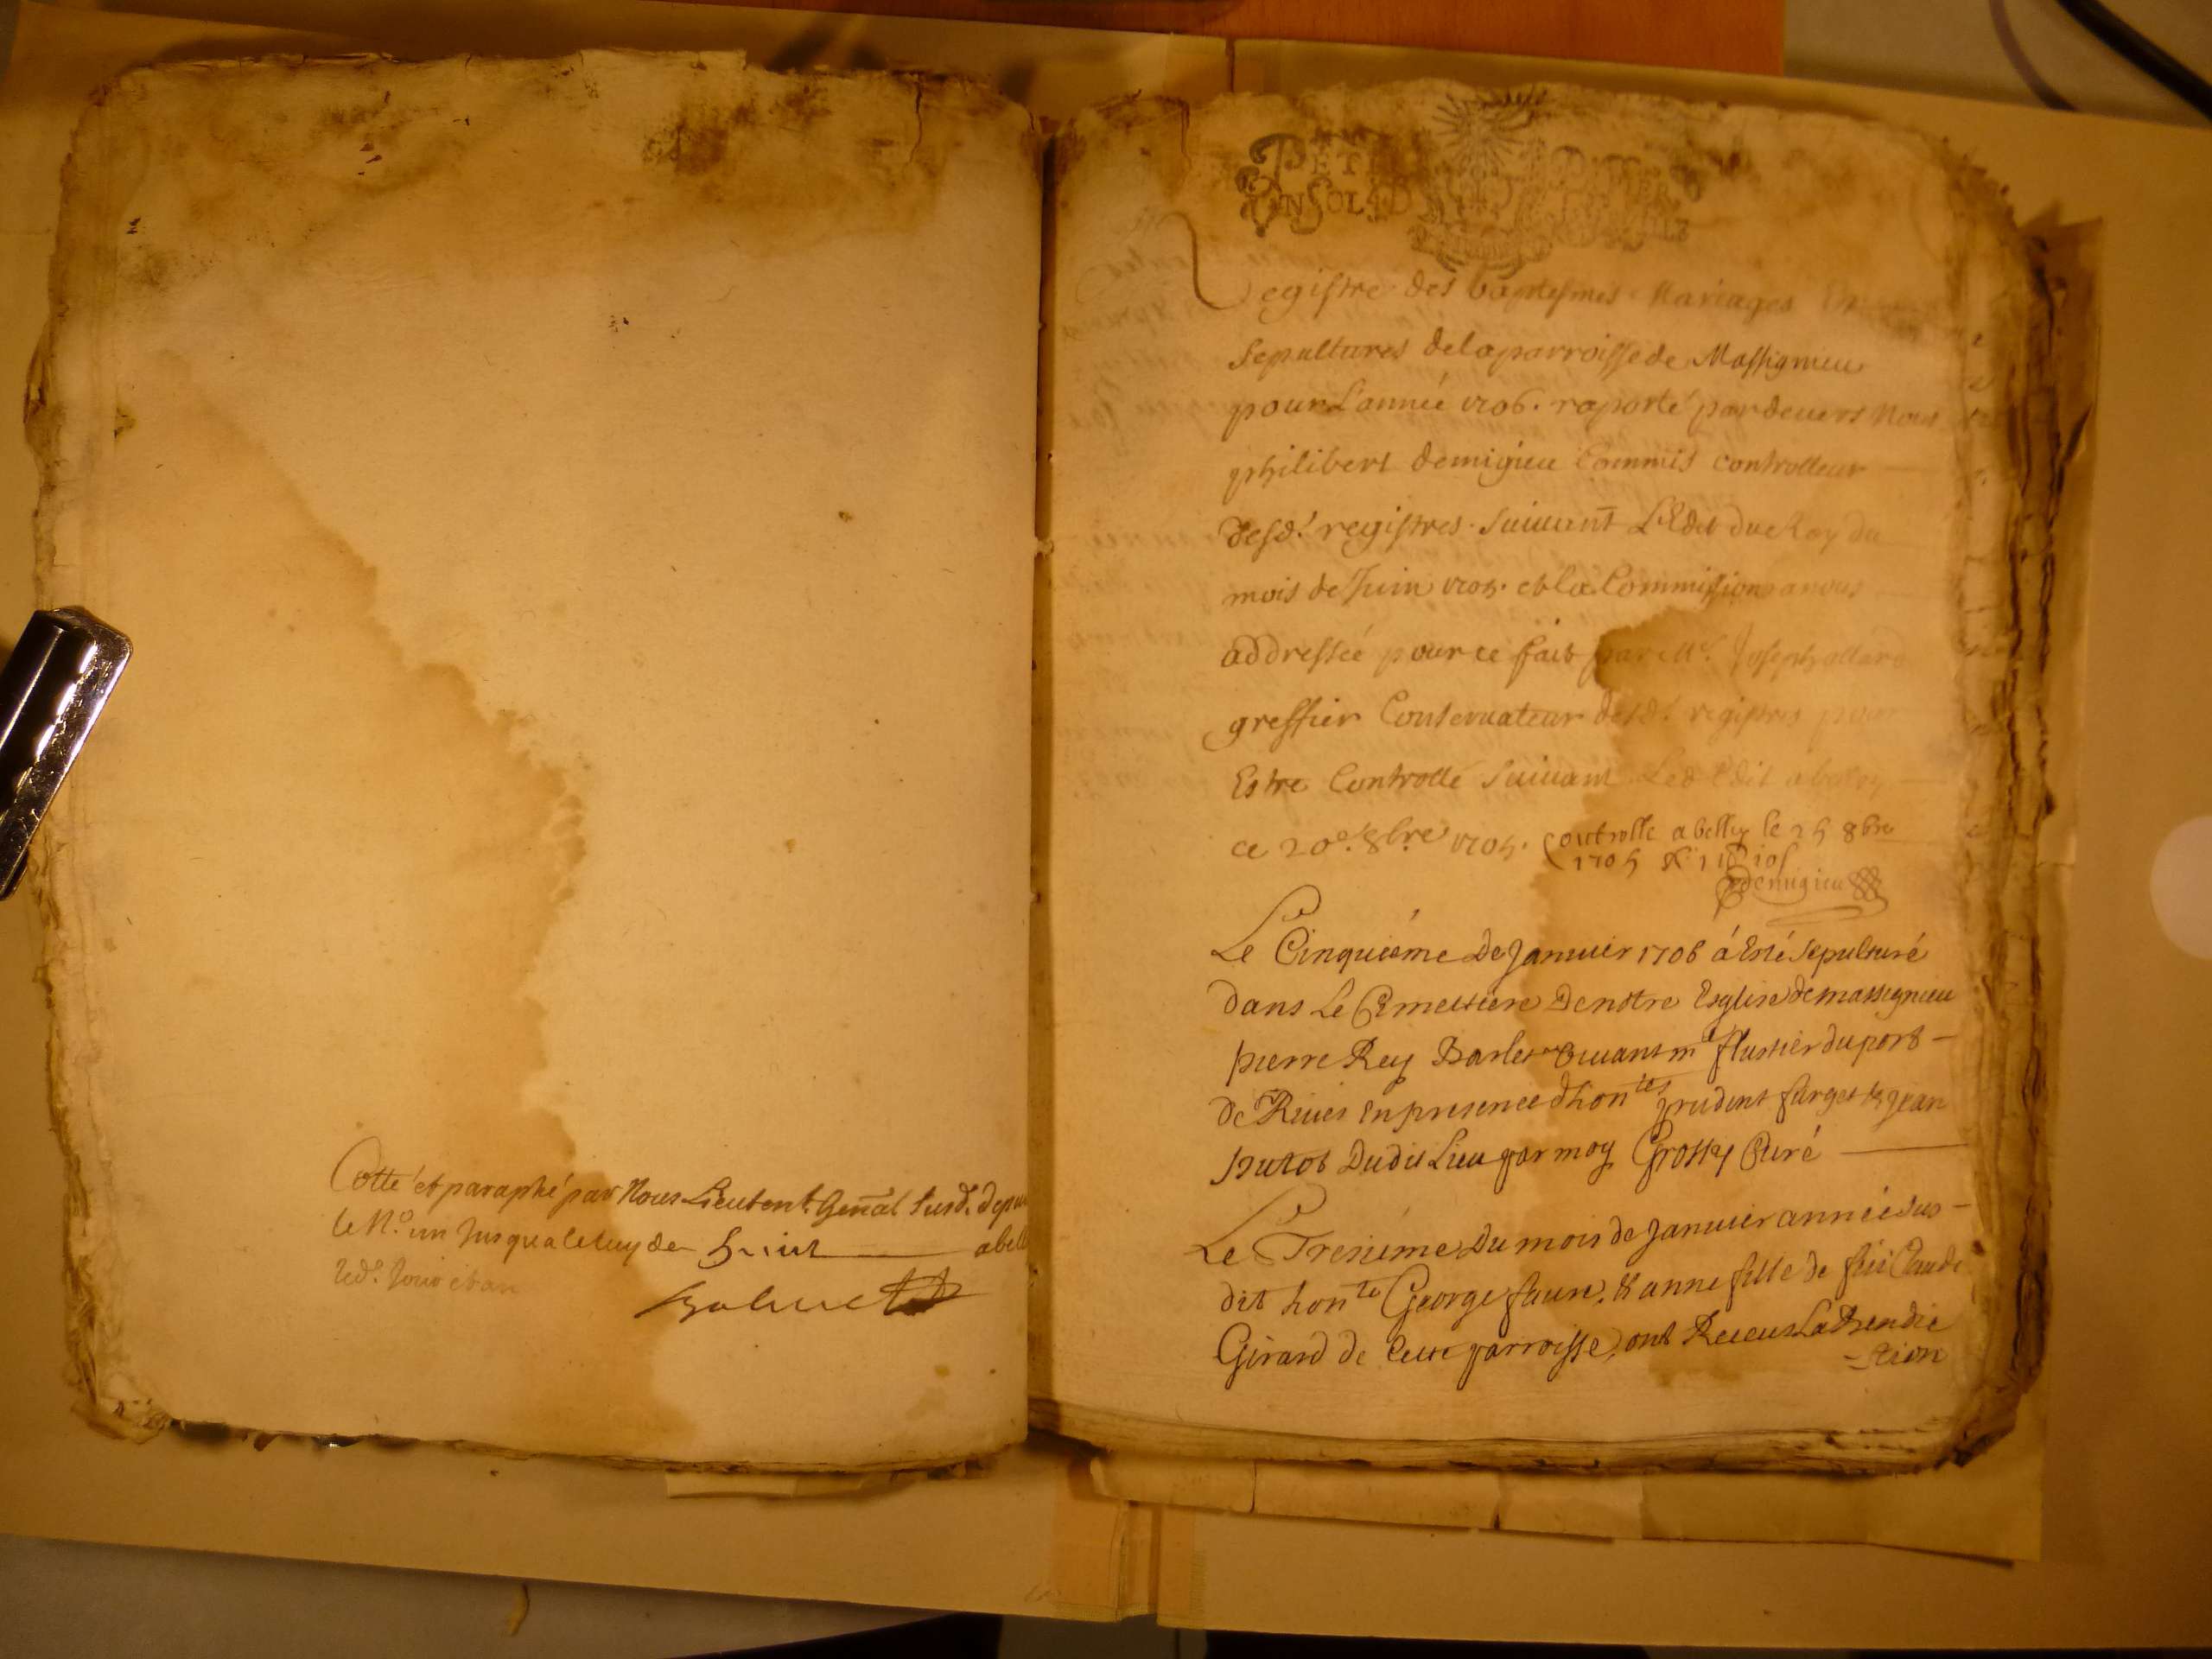 Cotté et paraphé par Nous Lieutent. Gen̄al susd.
le No. un jusqua celuy de huict
led. jour et an
PET
EN SOL 4 D
Registre des baptesmes Mariages Et
Sepultures de la parroisse de Massignieu
pour L'année 1706. raporté pardevers Nous
philibert demigieu Commis controlleur
desd. registres. suivant L'Edit du Roy du
mois de Juin 1705. et la Commission a nous
addressée pour ce fait par Me. Joseph allard
greffier Conservateur desd. registres pour
Estre Controllé suivant Led Edit a belley
ce 20e. 8bre 1705. Controlle a belley le 25 8bre
1705
demigieu
Le Cinquiéme De Janvier 1706 á Esté sepulturé
dans Le Cemettiere De nôtre Esglise de massignieu
pierre Rey Barlet vivant me flustier du port
de Rives en presence d'hontes prudent furget & jean
putot Dudit Lieu par moy Grossy Curé
Le Tresiéme Du mois de Janvier année sus-
dit honte George faure, & anne fille de feü Claude
Girard de Cette parroisse, ont Receus La Benedic
-tion